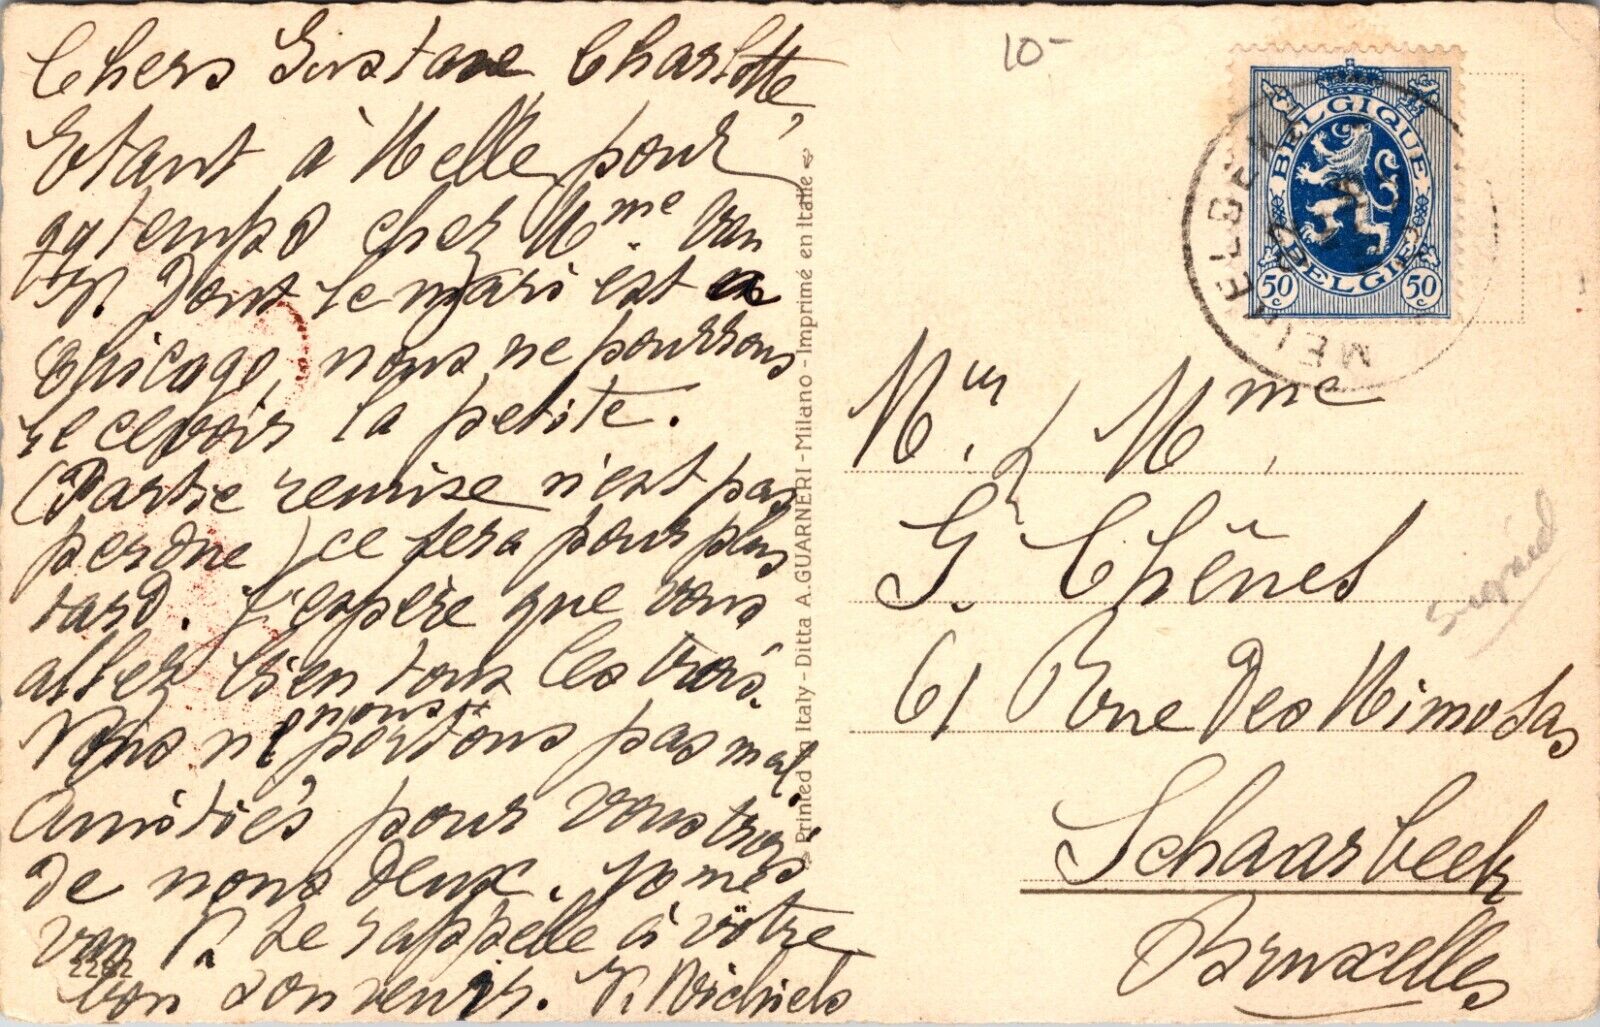 Chers Gustave Charlotte,
Etant à Melle pour
qq temps chez Mme. Van
P. dont le mari est a
Chicago, nous ne pourrons
recevoir la petite.
(Partie remise n'est pas
perdue) ce sera pour plus
tard. J'espère que vous
allez bien tous les trois.
Nous ne nous portons pas mal.
Amitiés pour vous trois
de nous deux. Mme
van P. se rappèlle à vôtre
bon souvenir. V. Michiels
2282
Printed in Italy - Ditta A. GUARNERI - Milano - Imprimé en Italie
10-
BELGIQUE
BELGIË
50 c
50 c
MEIRELBEKE
Mr. & Mme.
G. Chênes
61 Rue des Mimosas
Schaarbeek
Bruxelles